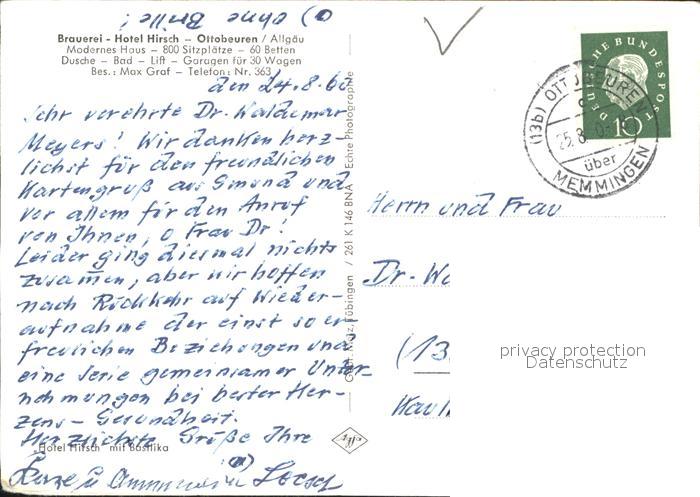 o) ohne Brille!
Brauerei - Hotel Hirsch - Ottobeuren / Allgäu
Modernes Haus - 800 Sitzplätze - 60 Betten
Dusche - Bad - Lift - Garagen für 30 Wagen
Bes.: Max Graf - Telefon: Nr. 363
den 24.8.60
Sehr verehrte Dr. Waldemar
Meyers! Wir danken herz-
lichst für den freundlichen
Kartengruß aus Gmünd und
vor allem für den Anruf
von Ihnen, o Frau Dr!
Leider ging diesmal nichts
zusammen, aber wir hoffen
nach Rückkehr auf Wieder-
aufnahme der einst so er
freulichen Beziehungen und
eine Serie gemeinsamer Unter-
nehmungen bei bester Her-
zens-Gesundheit.
Herzlichste Grüße Ihre
"Hotel Hirsch" mit Basilika
Tübingen / 261 K 146 BNA Echte Photographie
DEUTSCHE BUNDESPOST
10
(13b) OTTOBEUREN
25.8.
über
MEMMINGEN
Herrn und Frau
Dr. Wa
(13
Kauf
privacy protection
Datenschutz